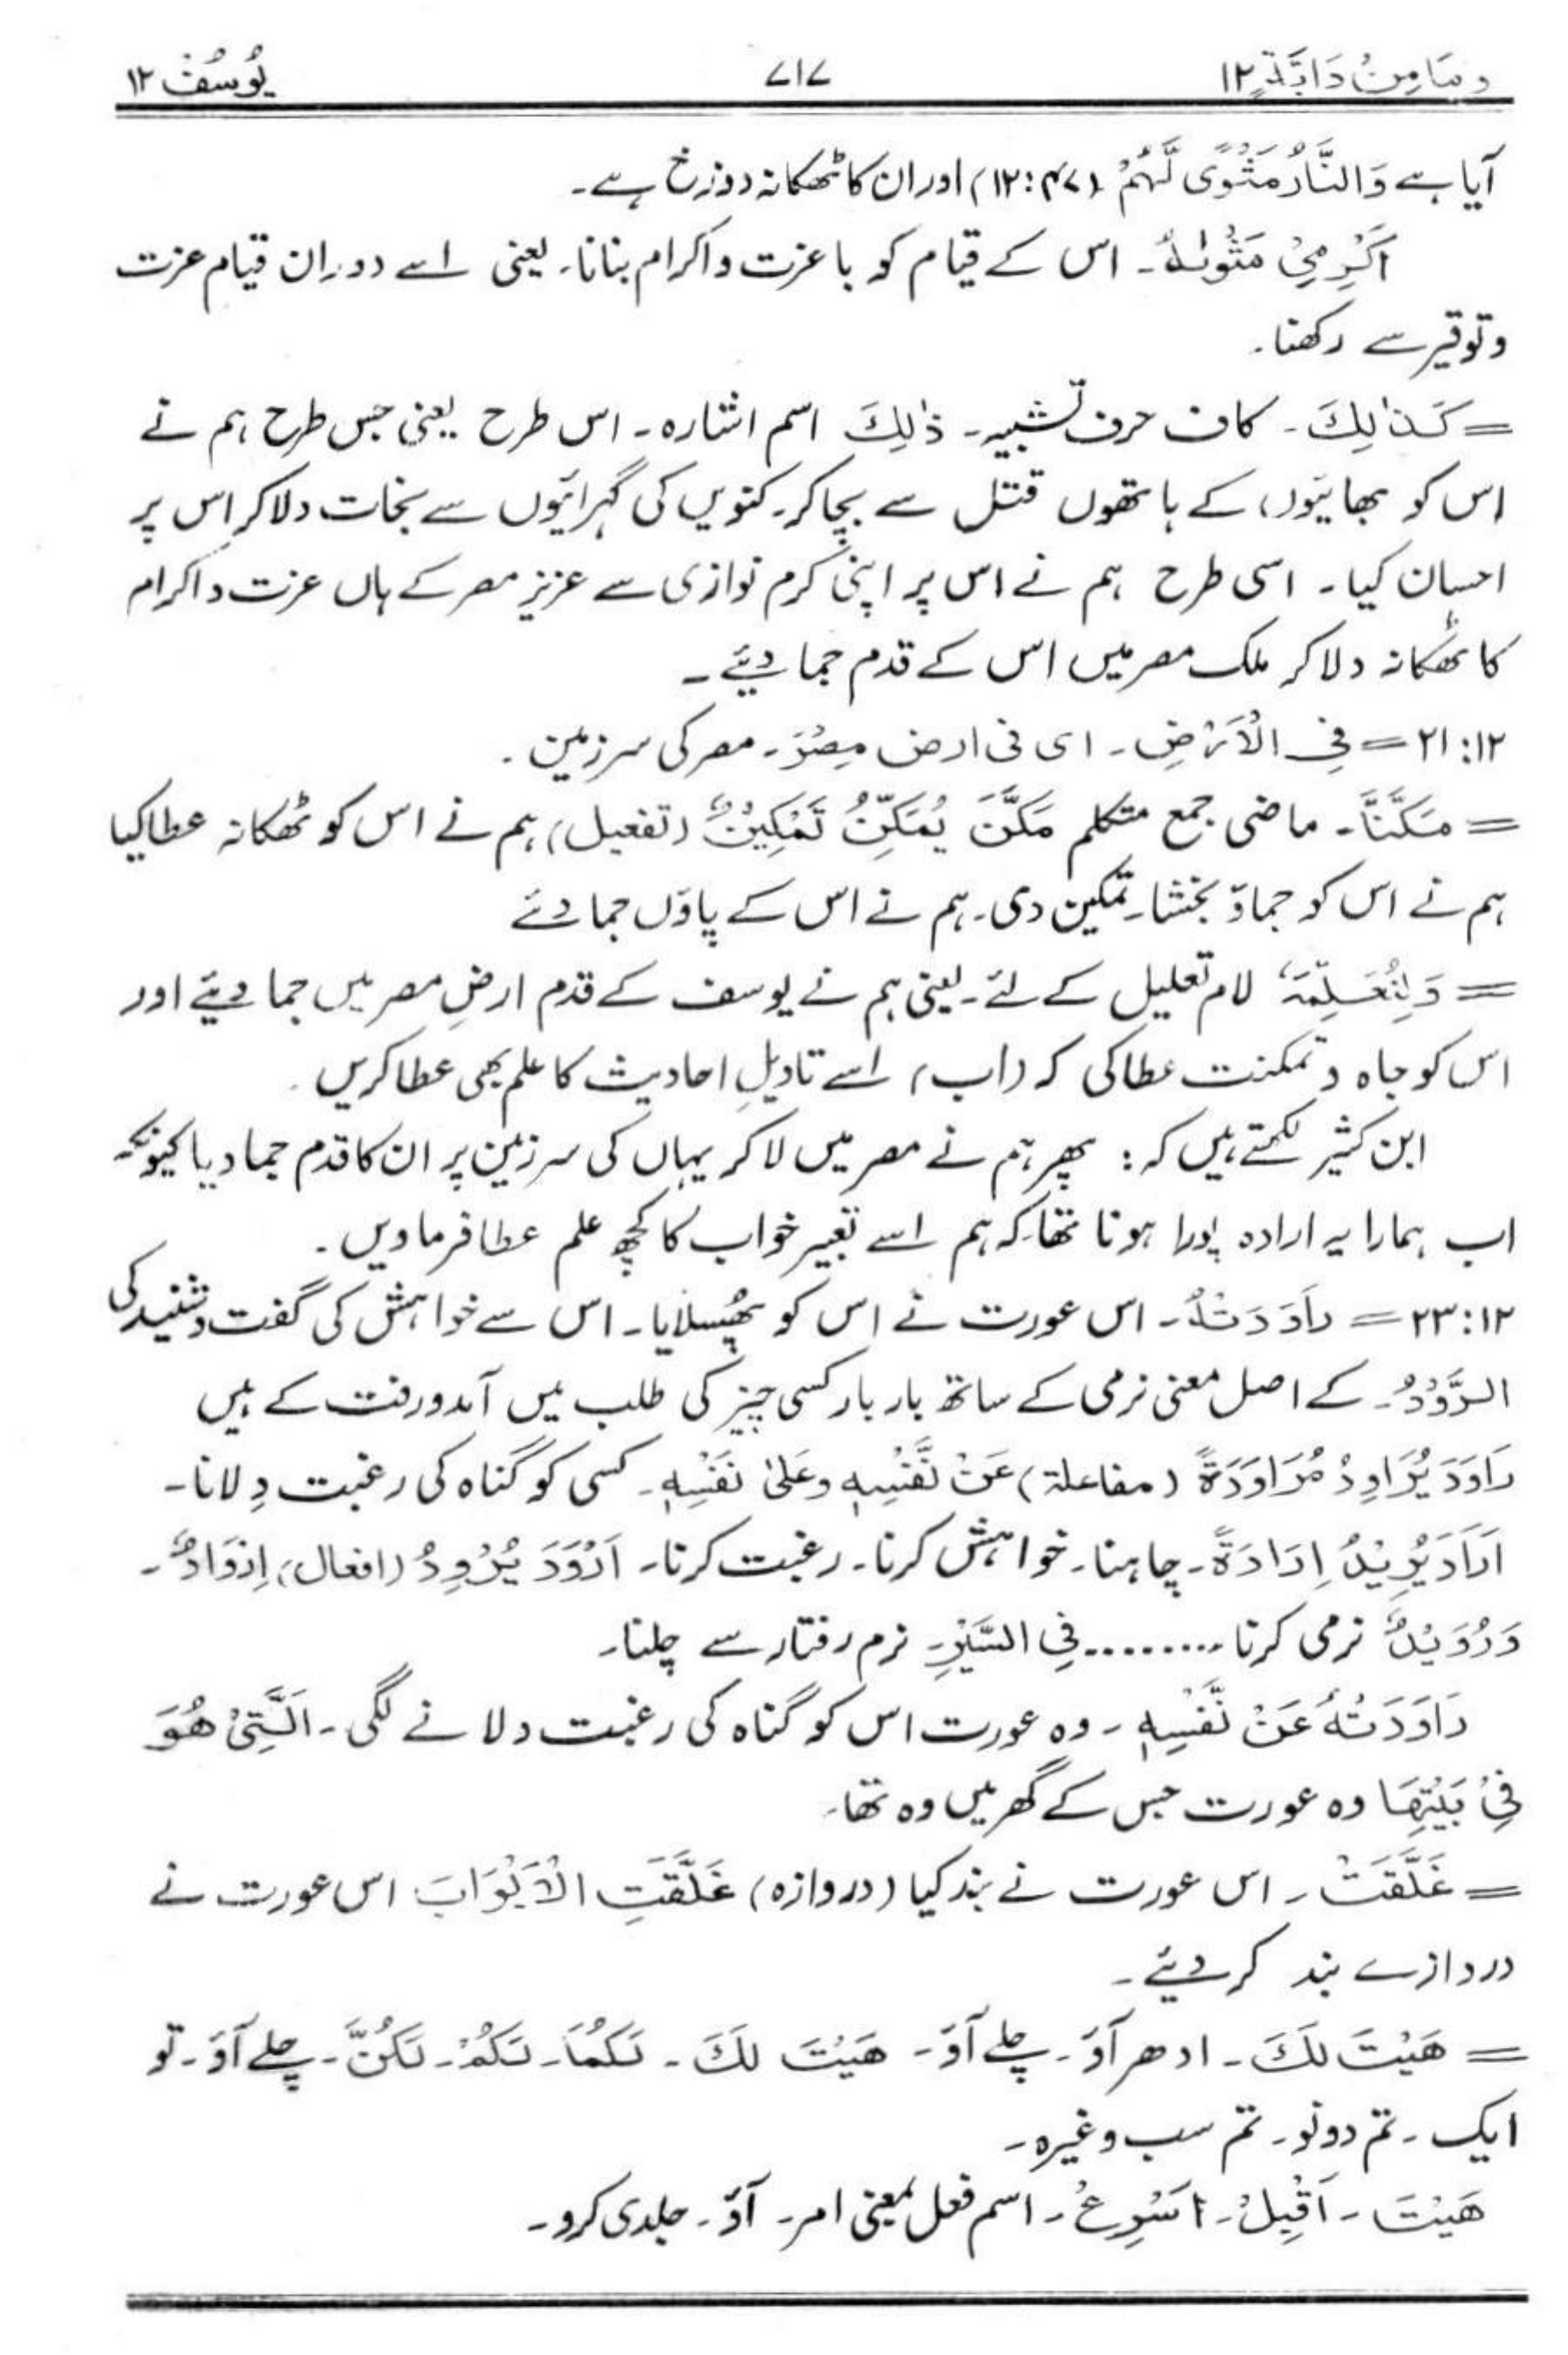 ومَا مِنْ دَابَّةٍ ۱۲ ۷۱۷ یُوْسُفْ ۱۲
آیا ہے وَالنَّارُ مَثْوًی لَّهُمْ (۱۲:۴۷) اور ان کا ٹھکانہ دوزخ ہے۔
اَکْرِمِیْ مَثْوٰىهُ۔ اس کے قیام کو با عزت و اکرام بنانا۔ یعنی اسے دوران قیام عزت
و توقیر سے رکھنا۔
= کَذٰلِكَ۔ کاف حرف تشبیہ۔ ذٰلِكَ اسم اشارہ۔ اس طرح یعنی جس طرح ہم نے
اس کو بھائیوں کے ہاتھوں قتل سے بچا کر۔ کنویں کی گہرائیوں سے نجات دلا کر اس پر
احسان کیا۔ اسی طرح ہم نے اس پر اپنی کرم نوازی سے عزیز مصر کے ہاں عزت و اکرام
کا ٹھکانہ دلا کر ملک مصر میں اس کے قدم جما دیئے۔
۲۱:۱۲ = فِی الْاَرْضِ۔ ای فی ارض مِصْرَ۔ مصر کی سرزمین۔
= مَکَّنَّا۔ ماضی جمع متکلم مَکَّنَ یُمَکِّنُ تَمْکِیْنٌ (تفعیل) ہم نے اس کو ٹھکانہ عطا کیا
ہم نے اس کو جماؤ بخشا۔ تمکین دی۔ ہم نے اس کے پاؤں جما دئے
= وَلِنُعَلِّمَهٗ لام تعلیل کے لئے۔ یعنی ہم نے یوسف کے قدم ارضِ مصر میں جما دیئے اور
اس کو جاہ و تمکنت عطا کی کہ (اب) اسے تاویلِ احادیث کا علم بھی عطا کریں۔
ابن کثیر لکھتے ہیں کہ: پھر ہم نے مصر میں لا کر یہاں کی سرزمین پر ان کا قدم جما دیا کیونکہ
اب ہمارا یہ ارادہ پورا ہونا تھا کہ ہم اسے تعبیر خواب کا کچھ علم عطا فرماویں۔
۲۳:۱۲ = رَاوَدَتْهُ۔ اس عورت نے اس کو پھُسلایا۔ اس سے خواہش کی گفت و شنید کی
الرَّوْدُ۔ کے اصل معنی نرمی کے ساتھ بار بار کسی چیز کی طلب میں آمدورفت کے ہیں
رَاوَدَ یُرَاوِدُ مُرَاوَدَةً (مفاعلة) عَنْ نَّفْسِهٖ وعَلیٰ نَفْسِهٖ۔ کسی کو گناہ کی رغبت دِلانا۔
اَرَادَ یُرِیْدُ اِرَادَةً۔ چاہنا۔ خواہش کرنا۔ رغبت کرنا۔ اَرْوَدَ یُرْوِدُ (افعال) اِرْوَادٌ۔
وَرُوَیْدٌ نرمی کرنا ......... فِی السَّیْرِ۔ نرم رفتار سے چلنا۔
رَاوَدَتْهُ عَنْ نَّفْسِهٖ۔ وہ عورت اس کو گناہ کی رغبت دلانے لگی۔ اَلَّتِیْ هُوَ
فِیْ بَیْتِهَا وہ عورت جس کے گھر میں وہ تھا۔
= غَلَّقَتْ۔ اس عورت نے بند کیا (دروازہ) غَلَّقَتِ الْاَبْوَابَ اس عورت نے
دروازے بند کر دیئے۔
= هَیْتَ لَكَ۔ ادھر آؤ۔ چلے آؤ۔ هَیْتَ لَكَ۔ لَکُمَا۔ لَکُمْ۔ لَکُنَّ۔ چلے آؤ۔ تو
ایک۔ تم دونو۔ تم سب وغیرہ۔
هَیْتَ۔ اَقْبِلْ۔ اَسْرِعْ۔ اسم فعل بمعنی امر۔ آؤ۔ جلدی کرو۔